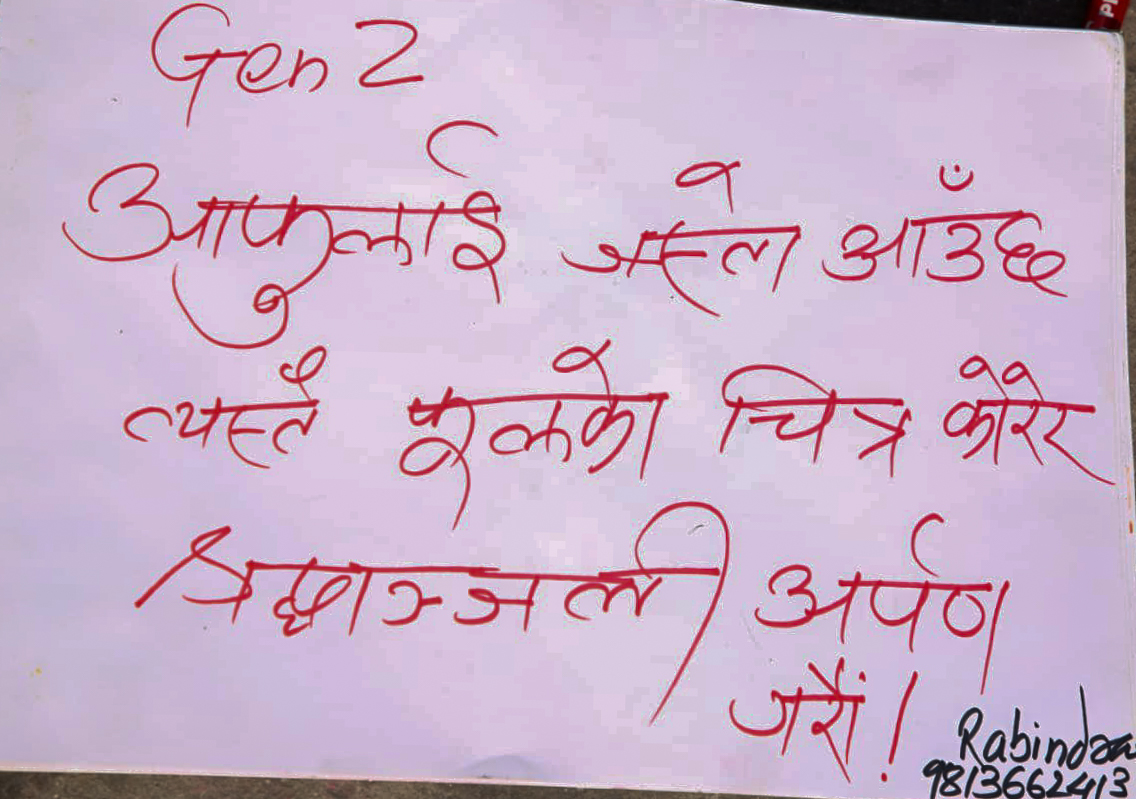 Gen Z
आफुलाई जस्तो आउँछ
त्यस्तै फूलको चित्र कोरेर
श्रद्धाञ्जली अर्पण
गरौं !
Rabindra
9813662413